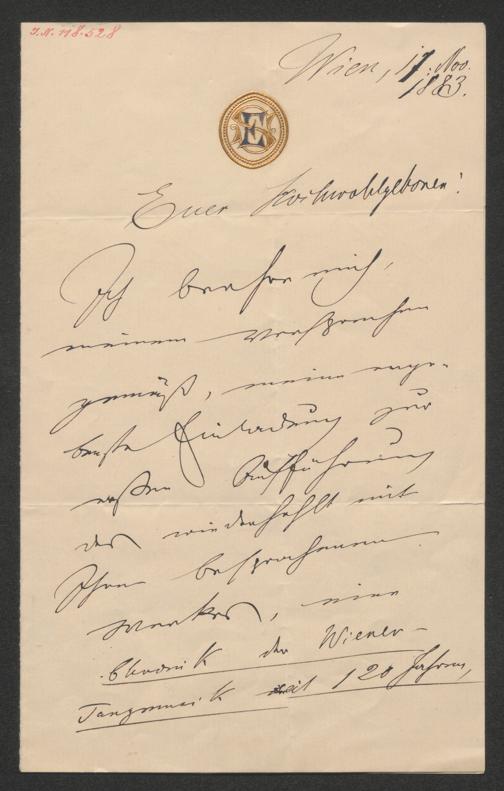 I.N. 118.528
Wien, 17. Nov.
1883.
E
Euer Hochwohlgeboren!
Ich beehre mich,
meinem Versprechen
gemäß, meine erge-
benste Einladung zur
ersten Aufführung
des wiederholt mit
Ihnen besprochenen
Werkes, eine
Chronik der Wiener-
Tanzmusik seit 120 Jahren,